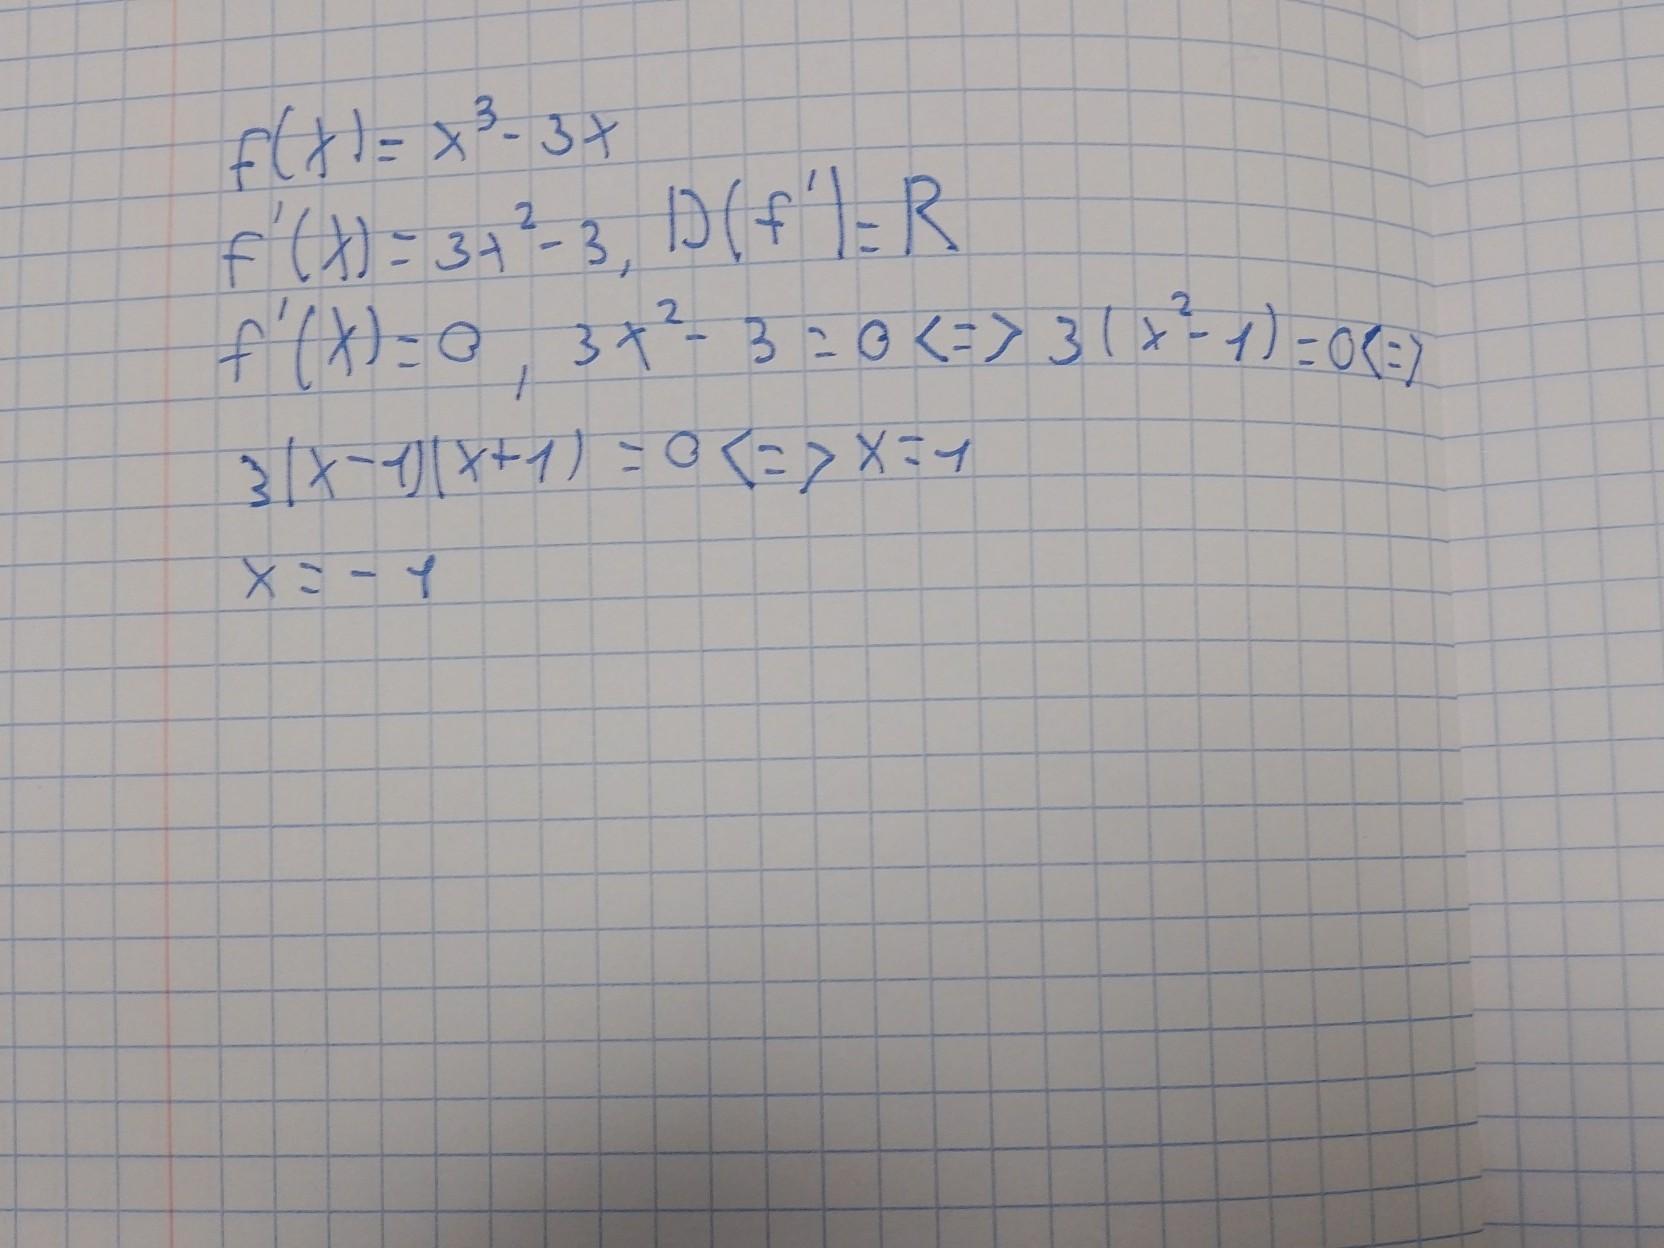 f(x) = x³ - 3x
f'(x) = 3x² - 3, D(f') = R
f'(x) = 0, 3x² - 3 = 0 <=> 3(x² - 1) = 0 <=>
3(x - 1)(x + 1) = 0 <=> x = 1
x = - 1